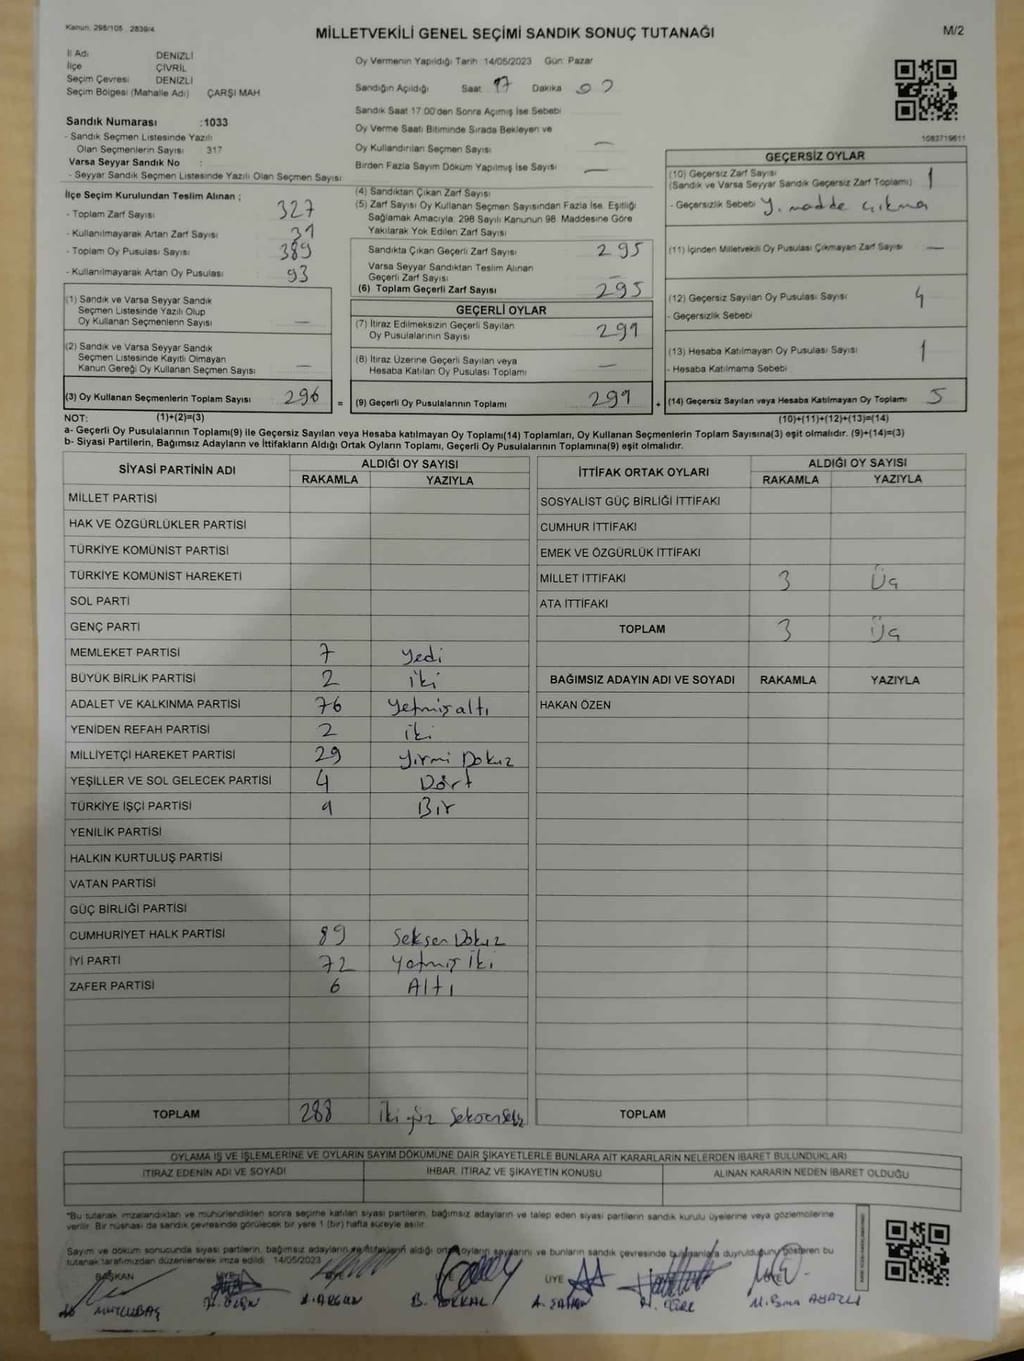 Kanun: 298/105 2839/4
MİLLETVEKİLİ GENEL SEÇİMİ SANDIK SONUÇ TUTANAĞI
M/2
İl Adı DENİZLİ
İlçe ÇİVRİL
Seçim Çevresi DENİZLİ
Seçim Bölgesi (Mahalle Adı) ÇARŞI MAH
Sandık Numarası :1033
- Sandık Seçmen Listesinde Yazılı
Olan Seçmenlerin Sayısı 317
Varsa Seyyar Sandık No :
- Seyyar Sandık Seçmen Listesinde Yazılı Olan Seçmen Sayısı
İlçe Seçim Kurulundan Teslim Alınan ;
- Toplam Zarf Sayısı 327
- Kullanılmayarak Artan Zarf Sayısı 31
- Toplam Oy Pusulası Sayısı 389
- Kullanılmayarak Artan Oy Pusulası 93
(1) Sandık ve Varsa Seyyar Sandık
Seçmen Listesinde Yazılı Olup
Oy Kullanan Seçmenlerin Sayısı —
(2) Sandık ve Varsa Seyyar Sandık
Seçmen Listesinde Kayıtlı Olmayan
Kanun Gereği Oy Kullanan Seçmen Sayısı —
(3) Oy Kullanan Seçmenlerin Toplam Sayısı 296
Oy Vermenin Yapıldığı Tarih 14/05/2023 Gün: Pazar
Sandığın Açıldığı Saat 17 Dakika
Sandık Saat 17:00'den Sonra Açılmış İse Sebebi
Oy Verme Saati Bitiminde Sırada Bekleyen ve
Oy Kullandırılan Seçmen Sayısı —
Birden Fazla Sayım Döküm Yapılmış İse Sayısı —
(4) Sandıktan Çıkan Zarf Sayısı
(5) Zarf Sayısı Oy Kullanan Seçmen Sayısından Fazla İse, Eşitliği
Sağlamak Amacıyla, 298 Sayılı Kanunun 98. Maddesine Göre
Yakılarak Yok Edilen Zarf Sayısı
Sandıkta Çıkan Geçerli Zarf Sayısı 295
Varsa Seyyar Sandıktan Teslim Alınan
Geçerli Zarf Sayısı —
(6) Toplam Geçerli Zarf Sayısı 295
GEÇERLİ OYLAR
(7) İtiraz Edilmeksizin Geçerli Sayılan
Oy Pusulalarının Sayısı 291
(8) İtiraz Üzerine Geçerli Sayılan veya
Hesaba Katılan Oy Pusulası Toplamı —
= (9) Geçerli Oy Pusulalarının Toplamı 291
1082719611
GEÇERSİZ OYLAR
(10) Geçersiz Zarf Sayısı
(Sandık ve Varsa Seyyar Sandık Geçersiz Zarf Toplamı) 1
- Geçersizlik Sebebi Y. madde çıkma
(11) İçinden Milletvekili Oy Pusulası Çıkmayan Zarf Sayısı —
(12) Geçersiz Sayılan Oy Pusulası Sayısı 4
- Geçersizlik Sebebi
(13) Hesaba Katılmayan Oy Pusulası Sayısı 1
- Hesaba Katılmama Sebebi
+ (14) Geçersiz Sayılan veya Hesaba Katılmayan Oy Toplamı 5
NOT: (1)+(2)=(3) (10)+(11)+(12)+(13)=(14)
a- Geçerli Oy Pusulalarının Toplamı(9) ile Geçersiz Sayılan veya Hesaba katılmayan Oy Toplamı(14) Toplamları, Oy Kullanan Seçmenlerin Toplam Sayısına(3) eşit olmalıdır. (9)+(14)=(3)
b- Siyasi Partilerin, Bağımsız Adayların ve İttifakların Aldığı Ortak Oyların Toplamı, Geçerli Oy Pusulalarının Toplamına(9) eşit olmalıdır.
SİYASİ PARTİNİN ADI ALDIĞI OY SAYISI
RAKAMLA YAZIYLA
MİLLET PARTİSİ
HAK VE ÖZGÜRLÜKLER PARTİSİ
TÜRKİYE KOMÜNİST PARTİSİ
TÜRKİYE KOMÜNİST HAREKETİ
SOL PARTİ
GENÇ PARTİ
MEMLEKET PARTİSİ 7 Yedi
BÜYÜK BİRLİK PARTİSİ 2 iki
ADALET VE KALKINMA PARTİSİ 76 Yetmiş altı
YENİDEN REFAH PARTİSİ 2 iki
MİLLİYETÇİ HAREKET PARTİSİ 29 Yirmi Dokuz
YEŞİLLER VE SOL GELECEK PARTİSİ 4 Dört
TÜRKİYE İŞÇİ PARTİSİ 1 Bir
YENİLİK PARTİSİ
HALKIN KURTULUŞ PARTİSİ
VATAN PARTİSİ
GÜÇ BİRLİĞİ PARTİSİ
CUMHURİYET HALK PARTİSİ 89 Seksen Dokuz
İYİ PARTİ 72 Yetmiş İki
ZAFER PARTİSİ 6 Altı
TOPLAM 288 iki yüz Seksen Sekiz
İTTİFAK ORTAK OYLARI ALDIĞI OY SAYISI
RAKAMLA YAZIYLA
SOSYALİST GÜÇ BİRLİĞİ İTTİFAKI
CUMHUR İTTİFAKI
EMEK VE ÖZGÜRLÜK İTTİFAKI
MİLLET İTTİFAKI 3 Üç
ATA İTTİFAKI
TOPLAM 3 Üç
BAĞIMSIZ ADAYIN ADI VE SOYADI RAKAMLA YAZIYLA
HAKAN ÖZEN
TOPLAM
OYLAMA İŞ VE İŞLEMLERİNE VE OYLARIN SAYIM DÖKÜMÜNE DAİR ŞİKAYETLERLE BUNLARA AİT KARARLARIN NELERDEN İBARET BULUNDUKLARI
İTİRAZ EDENİN ADI VE SOYADI İHBAR, İTİRAZ VE ŞİKAYETİN KONUSU ALINAN KARARIN NEDEN İBARET OLDUĞU
"Bu tutanak imzalandıktan ve mühürlendikten sonra seçime katılan siyasi partilerin, bağımsız adayların ve talep eden siyasi partilerin sandık kurulu üyelerine veya gözlemcilerine
verilir. Bir nüshası da sandık çevresinde görülecek bir yere 1 (bir) hafta süreyle asılır.
Sayım ve döküm sonucunda siyasi partilerin, bağımsız adayların ve ittifakların aldığı ortak oyların sayılarını ve bunların sandık çevresinde bulunanlara duyrulduğunu gösteren bu
tutanak tarafımızdan düzenlenerek imza edildi. 14/05/2023
BAŞKAN ÜYE ÜYE
MUTLUBAŞ A. ARGUN B. A. ŞAHAN